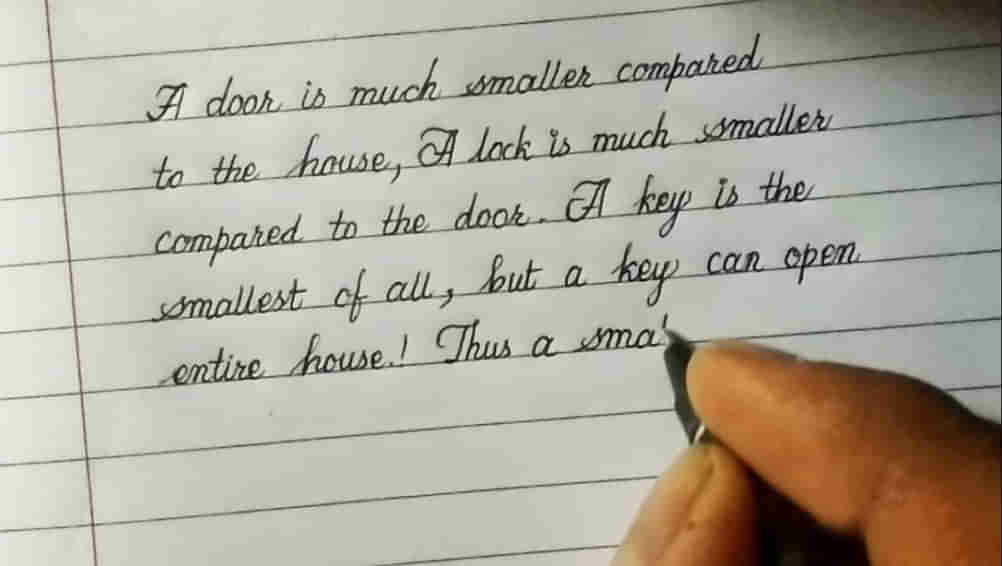 A door is much smaller compared
to the house, A lock is much smaller
compared to the door. A key is the
smallest of all, but a key can open
entire house.! Thus a smal